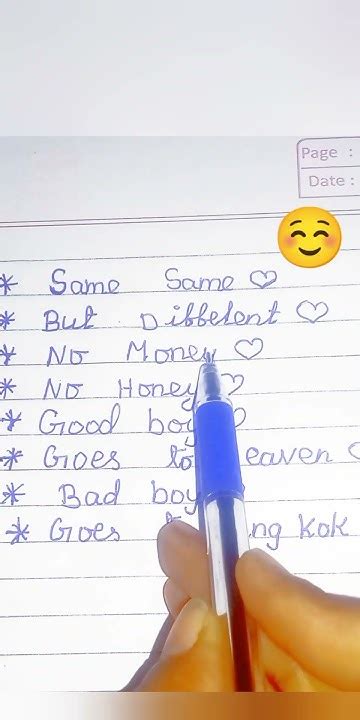 Page :
Date :
* Same Same ♡
* But Different ♡
* No Money ♡
* No Honey ♡
* Good boy ♡
* Goes to eaven ♡
* Bad boy
* Goes ng kok